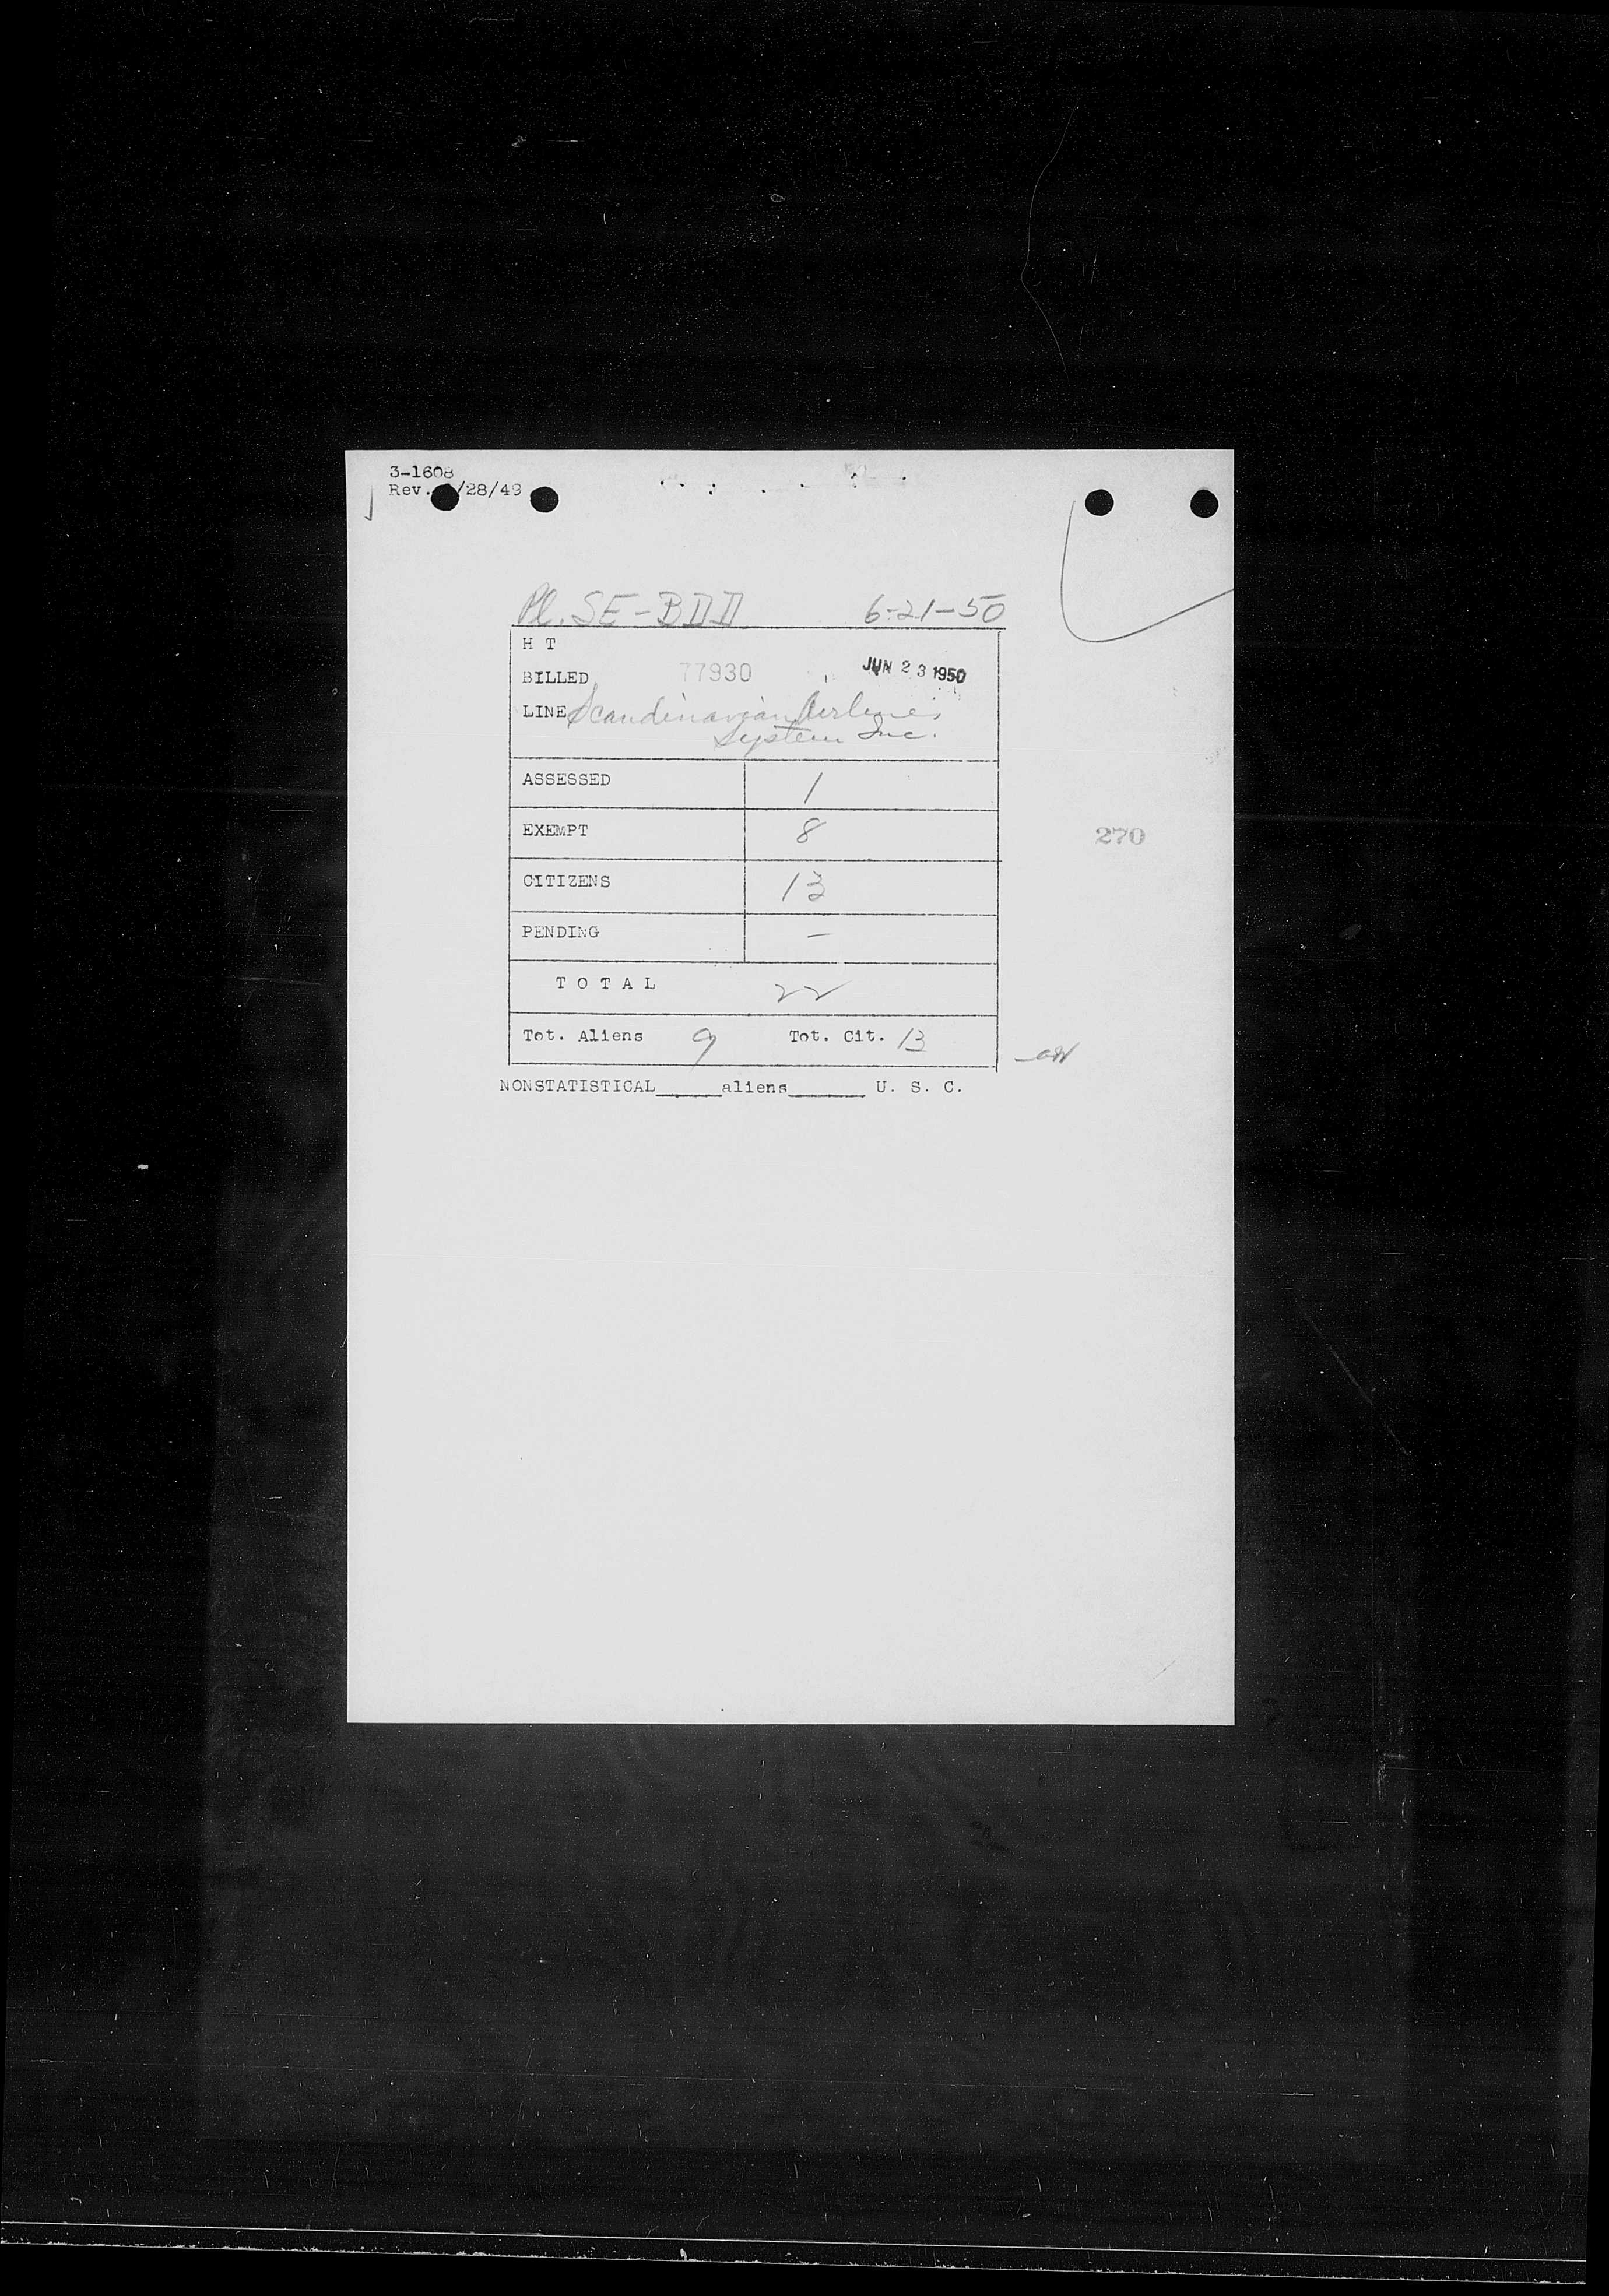 3-1608
Rev. /28/49
Pl. SE-BDD 6-21-50
H T
BILLED 77930 JUN 23 1950
LINE Scandinavian Airlines
System Inc.
ASSESSED 1
EXEMPT 8
270
CITIZENS 13
PENDING –
TOTAL 22
Tot. Aliens 9 Tot. Cit. 13
NONSTATISTICAL______aliens______ U. S. C.